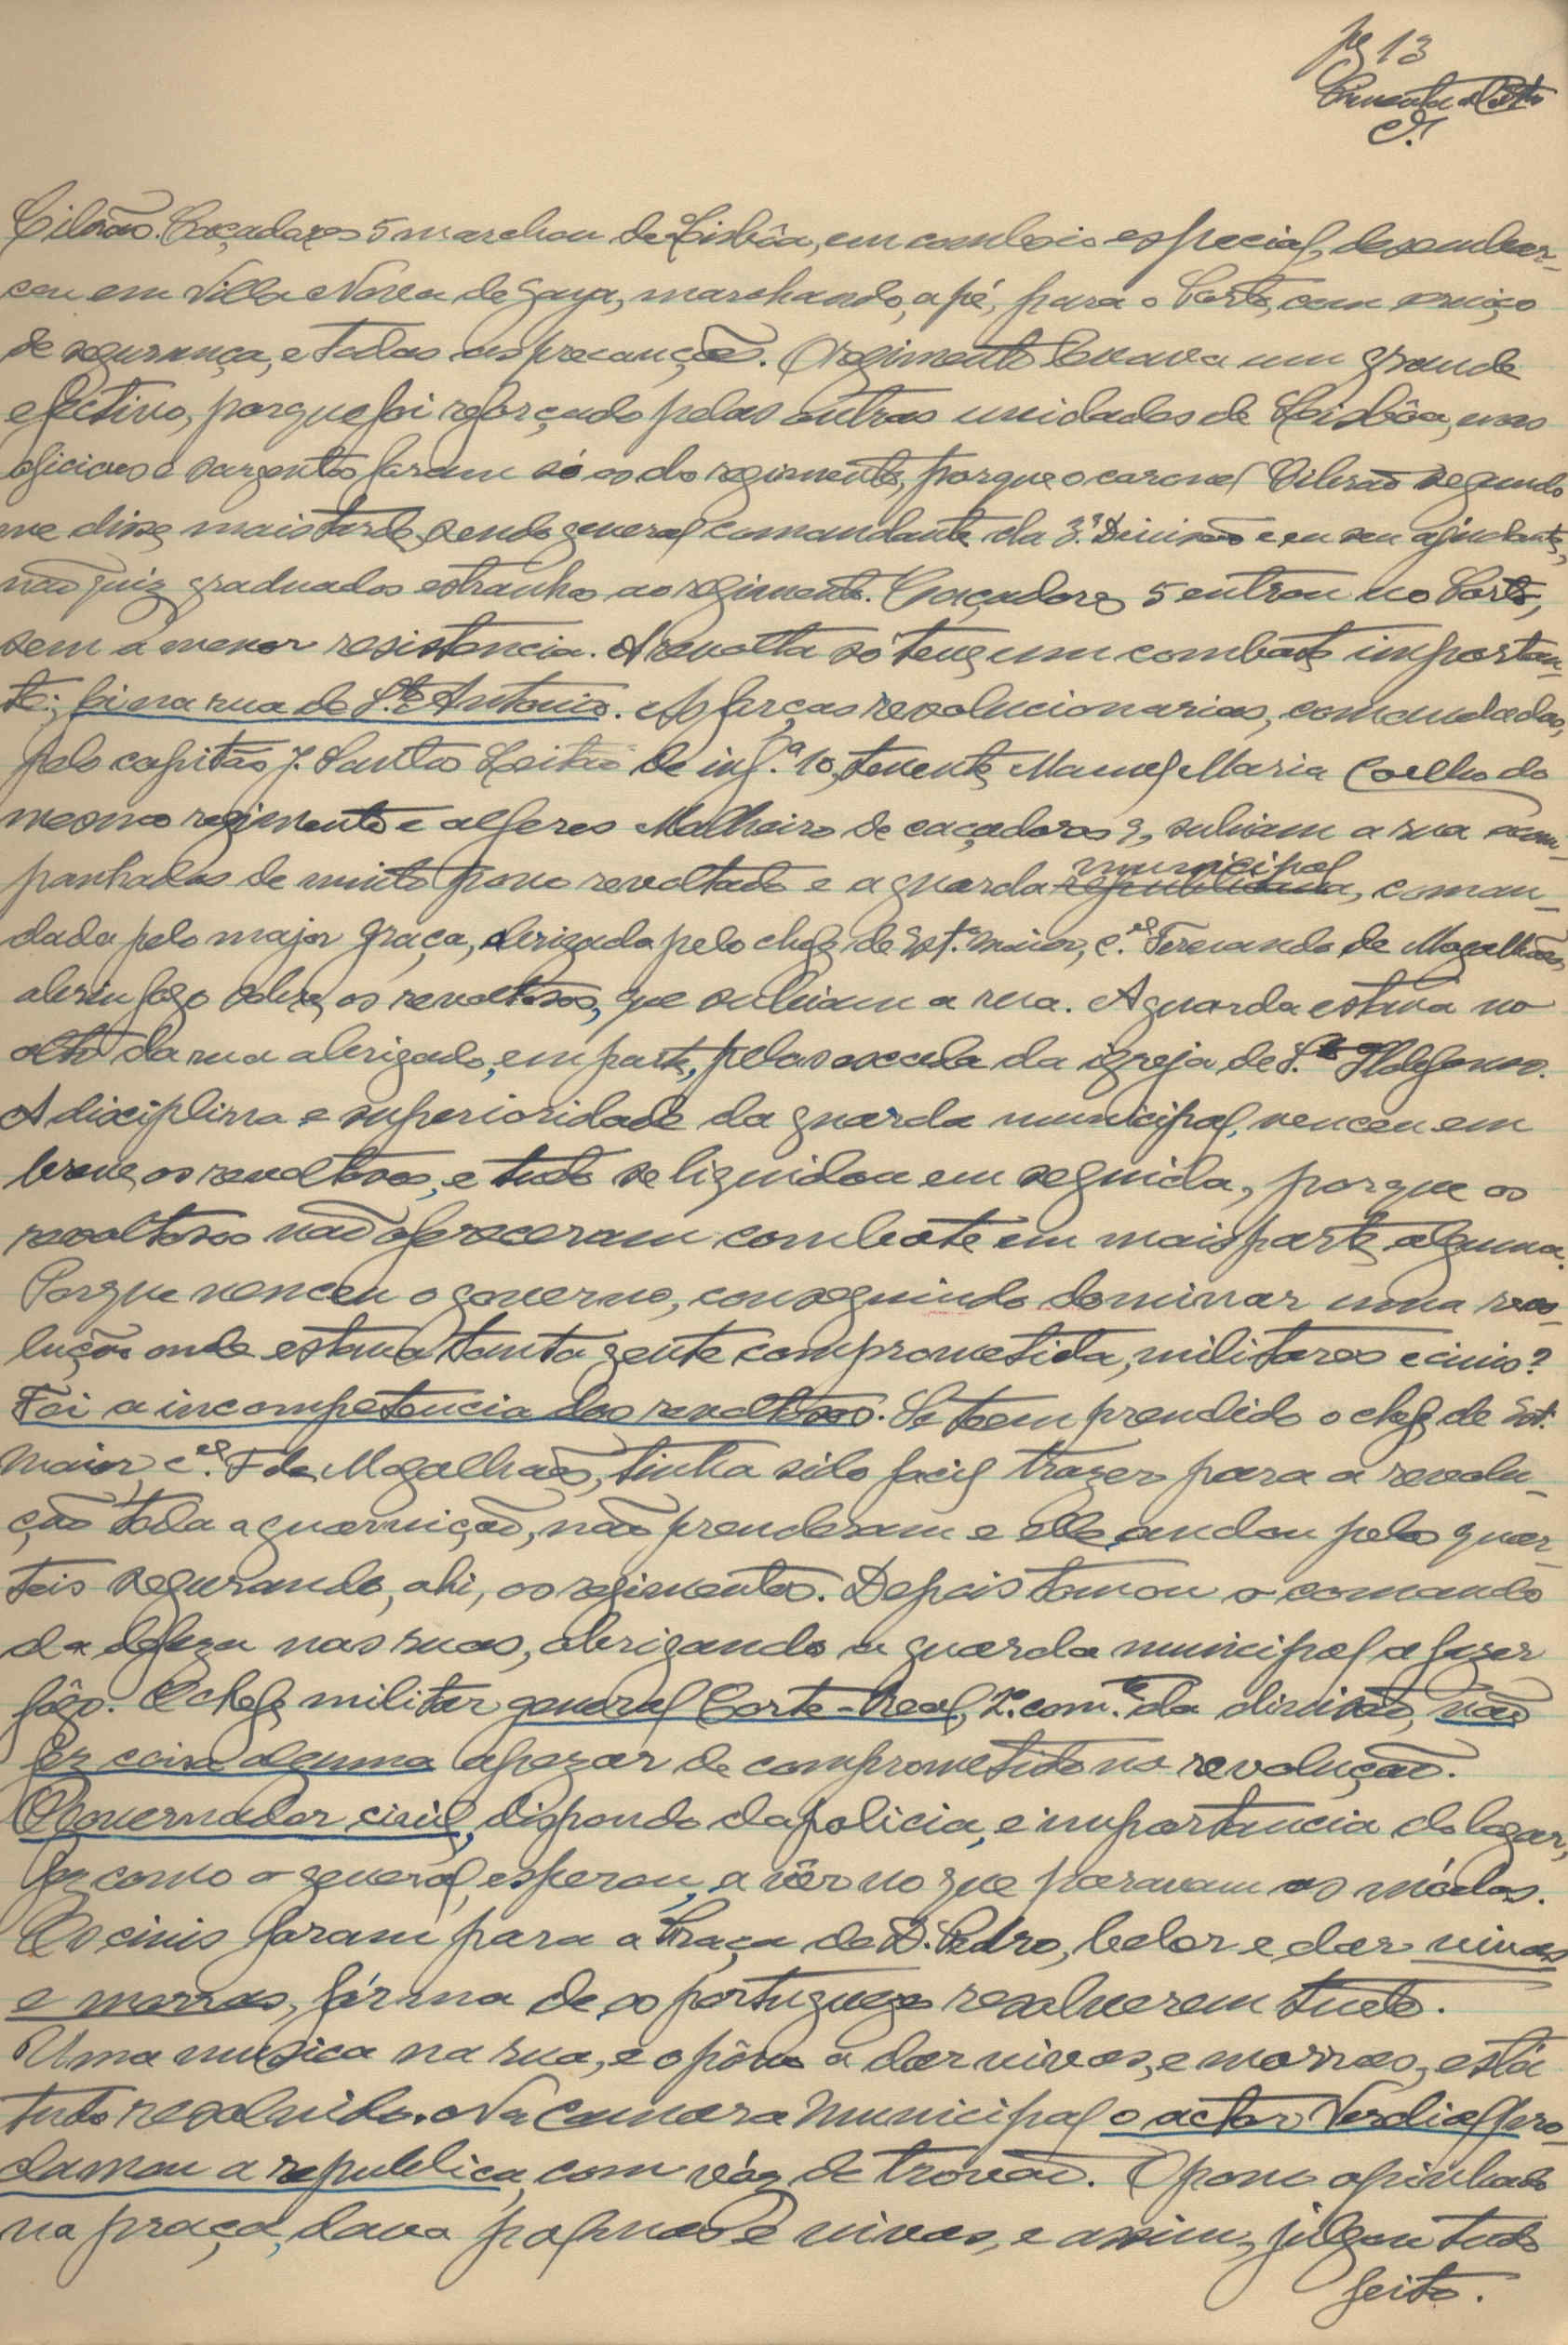 pg 13
Cibrão. Caçadores 5 marchou de Lisbôa, em comboio especial, desembar-
cou em Villa Nova de Gaya, marchando, a pé, para o Porto, com serviço
de segurança, e todas as precauções. O regimento levava um grande
efectivo, porque foi reforçado pelas outras unidades de Lisbôa, mas
oficiaes e sargentos foram só os do regimento, porque o coronel Cibrão segundo
me disse, mais tarde, sendo general comandante da 3.ª Divisão e eu seu ajudante,
não quiz graduados estranhos ao regimento. Caçadores 5 entrou no Porto,
sem a menor resistencia. A revolta só teve um combate importan-
te; foi na rua de S.to Antonio. As forças revolucionarias, comandadas,
pelo capitão J. Santos Leitão de inf.ª 10, tenente Manuel Maria Coelho do
mesmo regimento e alferes Malheiro de caçadores 9, subiam a rua acom-
panhadas de muito povo revoltado e a guarda republicana municipal, coman-
dada pelo major Graça, obrigada pelo chefe de Est.º maior, c.el Fernando de Magalhães
abriu fogo sobre os revoltosos, que subiam a rua. A guarda estava no
alto da rua abrigada, em parte, pela escada da igreja de S.to Ildefonso.
A disciplina e superioridade da guarda municipal, venceu em
breve, os revoltosos, e tudo se liquidou em seguida, porque os
revoltosos não ofereceram combate em mais parte alguma.
Porque venceu o governo, conseguindo dominar uma revo-
lução onde estava tanta gente comprometida, militares e civis?
Foi a incompetencia dos revoltosos. Se teem prendido o chefe de Est.
Maior c.el F. de Magalhães, tinha sido facil trazer para a revolu-
ção toda a guarnição, não prenderam e elle andou pelos quar-
teis segurando, ahi, os regimentos. Depois tomou o comando
da defeza nas ruas, obrigando a guarda municipal a fazer
fôgo. O chefe militar general Corte-Real, 2.º com.te da divisão, não
fez coisa alguma apezar de comprometido na revolução.
O governador civil, dispondo da policia, e importancia do logar,
fez como o general, esperou, a vêr no que paravam as módas.
Os civis foram para a Praça de D. Pedro, e dar vivas
e morras, fórma de os portuguezes resolverem tudo.
Uma musica na rua, e o pôvo a dar vivas, e morras, está
tudo resolvido. Na Camara Municipal o actor Verdial pro-
clamou a republica, com vóz de trovão. O povo apinhado
na praça, dava palmas e vivas, e assim, julgou tudo
feito.